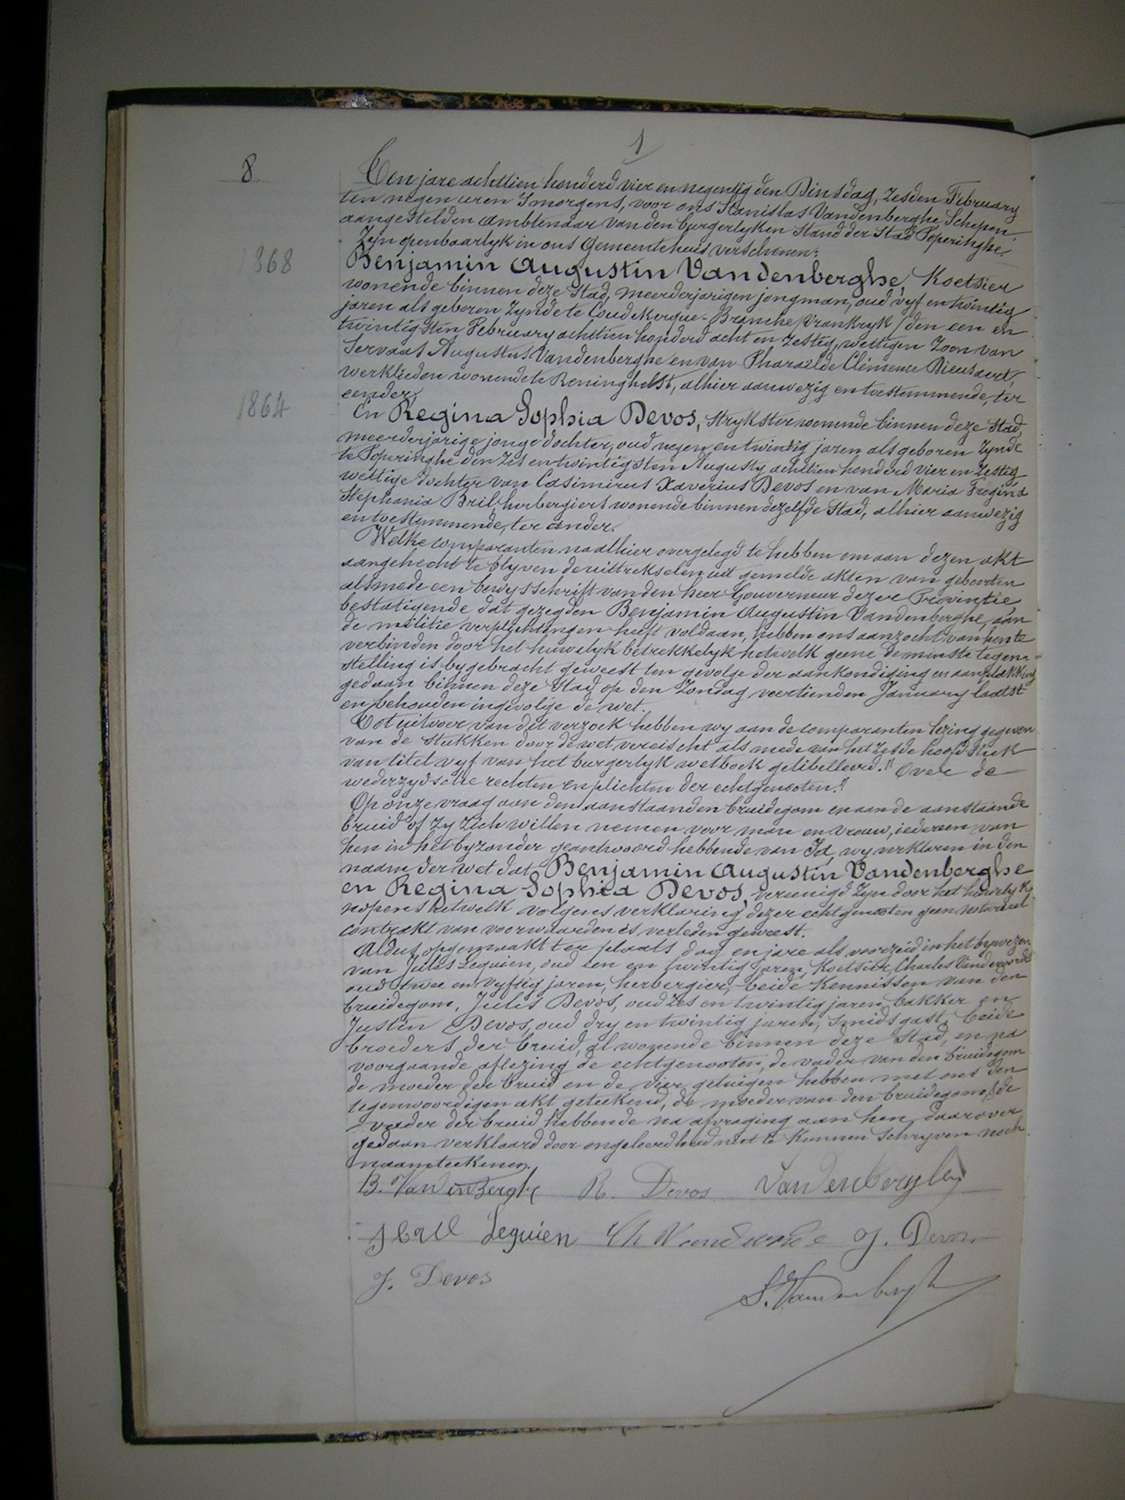 1
8
Ten jare achttien honderd vier en negentig den Dinsdag, zesden February
ten negen uren 's morgens, voor ons Stanislas Vandenberghe, Schepen
aangestelden Ambtenaar van den burgerlyken Stand der Stad Poperinghe
Zyn openbaarlyk in ons Gemeentehuis verschenen:
1868
Benjamin Augustin Vandenberghe, Koetsier
wonende binnen deze Stad, meerderjarigen jongman, oud vyf en twintig
jaren als geboren zynde te Coudekerque-Branche /Vrankryk/ den een en
twintigsten February achttien honderd acht en zestig, wettigen Zoon van
Servaas Augustus Vandenberghe en van Pharaïlde Clémence
werklieden wonende te Reninghelst, alhier aanwezig en toestemmende, ter
eender.
1864
En Regina Sophia Devos, Strykster wonende binnen deze Stad,
meerderjarige jonge dochter, oud negen en twintig jaren als geboren zynde
te Poperinghe den zes en twintigsten Augusty achttien honderd vier en zestig
wettige dochter van Casimirus Xaverius Devos en van Maria Regina
Stephania Bril, herbergiers wonende binnen dezelfde Stad, alhier aanwezig
en toestemmende, ter ander.
Welke comparanten na alhier overgelegd te hebben om aan dezen akt
aangehecht te blyven de uittrekselen uit gemelde akten van geboorten
alsmede een bewysschrift van den heer Gouverneur dezer Provintie
bestatigende dat gezegden Benjamin Augustin Vandenberghe, aan
de militie verplichtingen heeft voldaan, hebben ons aanzocht van hen te
verbinden door het huwelyk betrekkelyk hetwelk geene de minste tegen-
stelling is bygebracht geweest ten gevolge der aankondiging en aanplakking
gedaan binnen deze Stad op den Zondag veertienden January laatst
en behouden ingevolge de wet.
Tot uitvoer van dit verzoek hebben wy aan de comparanten lezing gegeven
van de stukken door de wet vereischt als mede van het zesde hoofdstuk
van titel vyf van het burgerlyk wetboek gelibelleerd: "Over de
wederzydsche rechten en plichten der echtgenooten."
Op onze vraag aan den aanstaanden bruidegom en aan de aanstaande
bruid of zy zich willen nemen voor man en vrouw, iedereen van
hen in het byzonder geantwoord hebbende van Ja, wy verklaren in den
naam der wet dat Benjamin Augustin Vandenberghe
en Regina Sophia Devos, vereenigd zyn door het huwelyk
nopens hetwelk volgens verklaring dezer echtgenooten geen notariaal
contrakt van voorwaarden is verleden geweest.
Aldus opgemaakt ter plaats dag en jare als voorzeid in het bywezen
van Jules Leguien, oud een en twintig jaren, Koetsier, Charles
oud twee en vyftig jaren, herbergier, beide Kennissen van den
bruidegom, Jules Devos, oud zes en twintig jaren, bakker en
Justin Devos, oud dry en twintig jaren, smidsgast, beide
broeders der bruid, al wonende binnen deze Stad, en na
voorgaande aflezing de echtgenooten, de vader van den bruidegom
de moeder der bruid en de vier getuigen hebben met ons den
tegenwoordigen akt geteekend, de moeder van den bruidegom, de
vader der bruid hebbende na afvraging aan hen, daarover
gedaan verklaard door ongeleerdheid niet te Kunnen schryven noch
naamteekenen.
B. Vandenberghe R. Devos Vandenberghe
Leguien Ch J. Devos
J. Devos
S. Vandenberghe